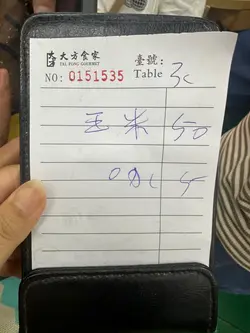 大方食家 臺號：
TAI FONG GOURMET
NO: 0151535 Table 3c
玉米 50